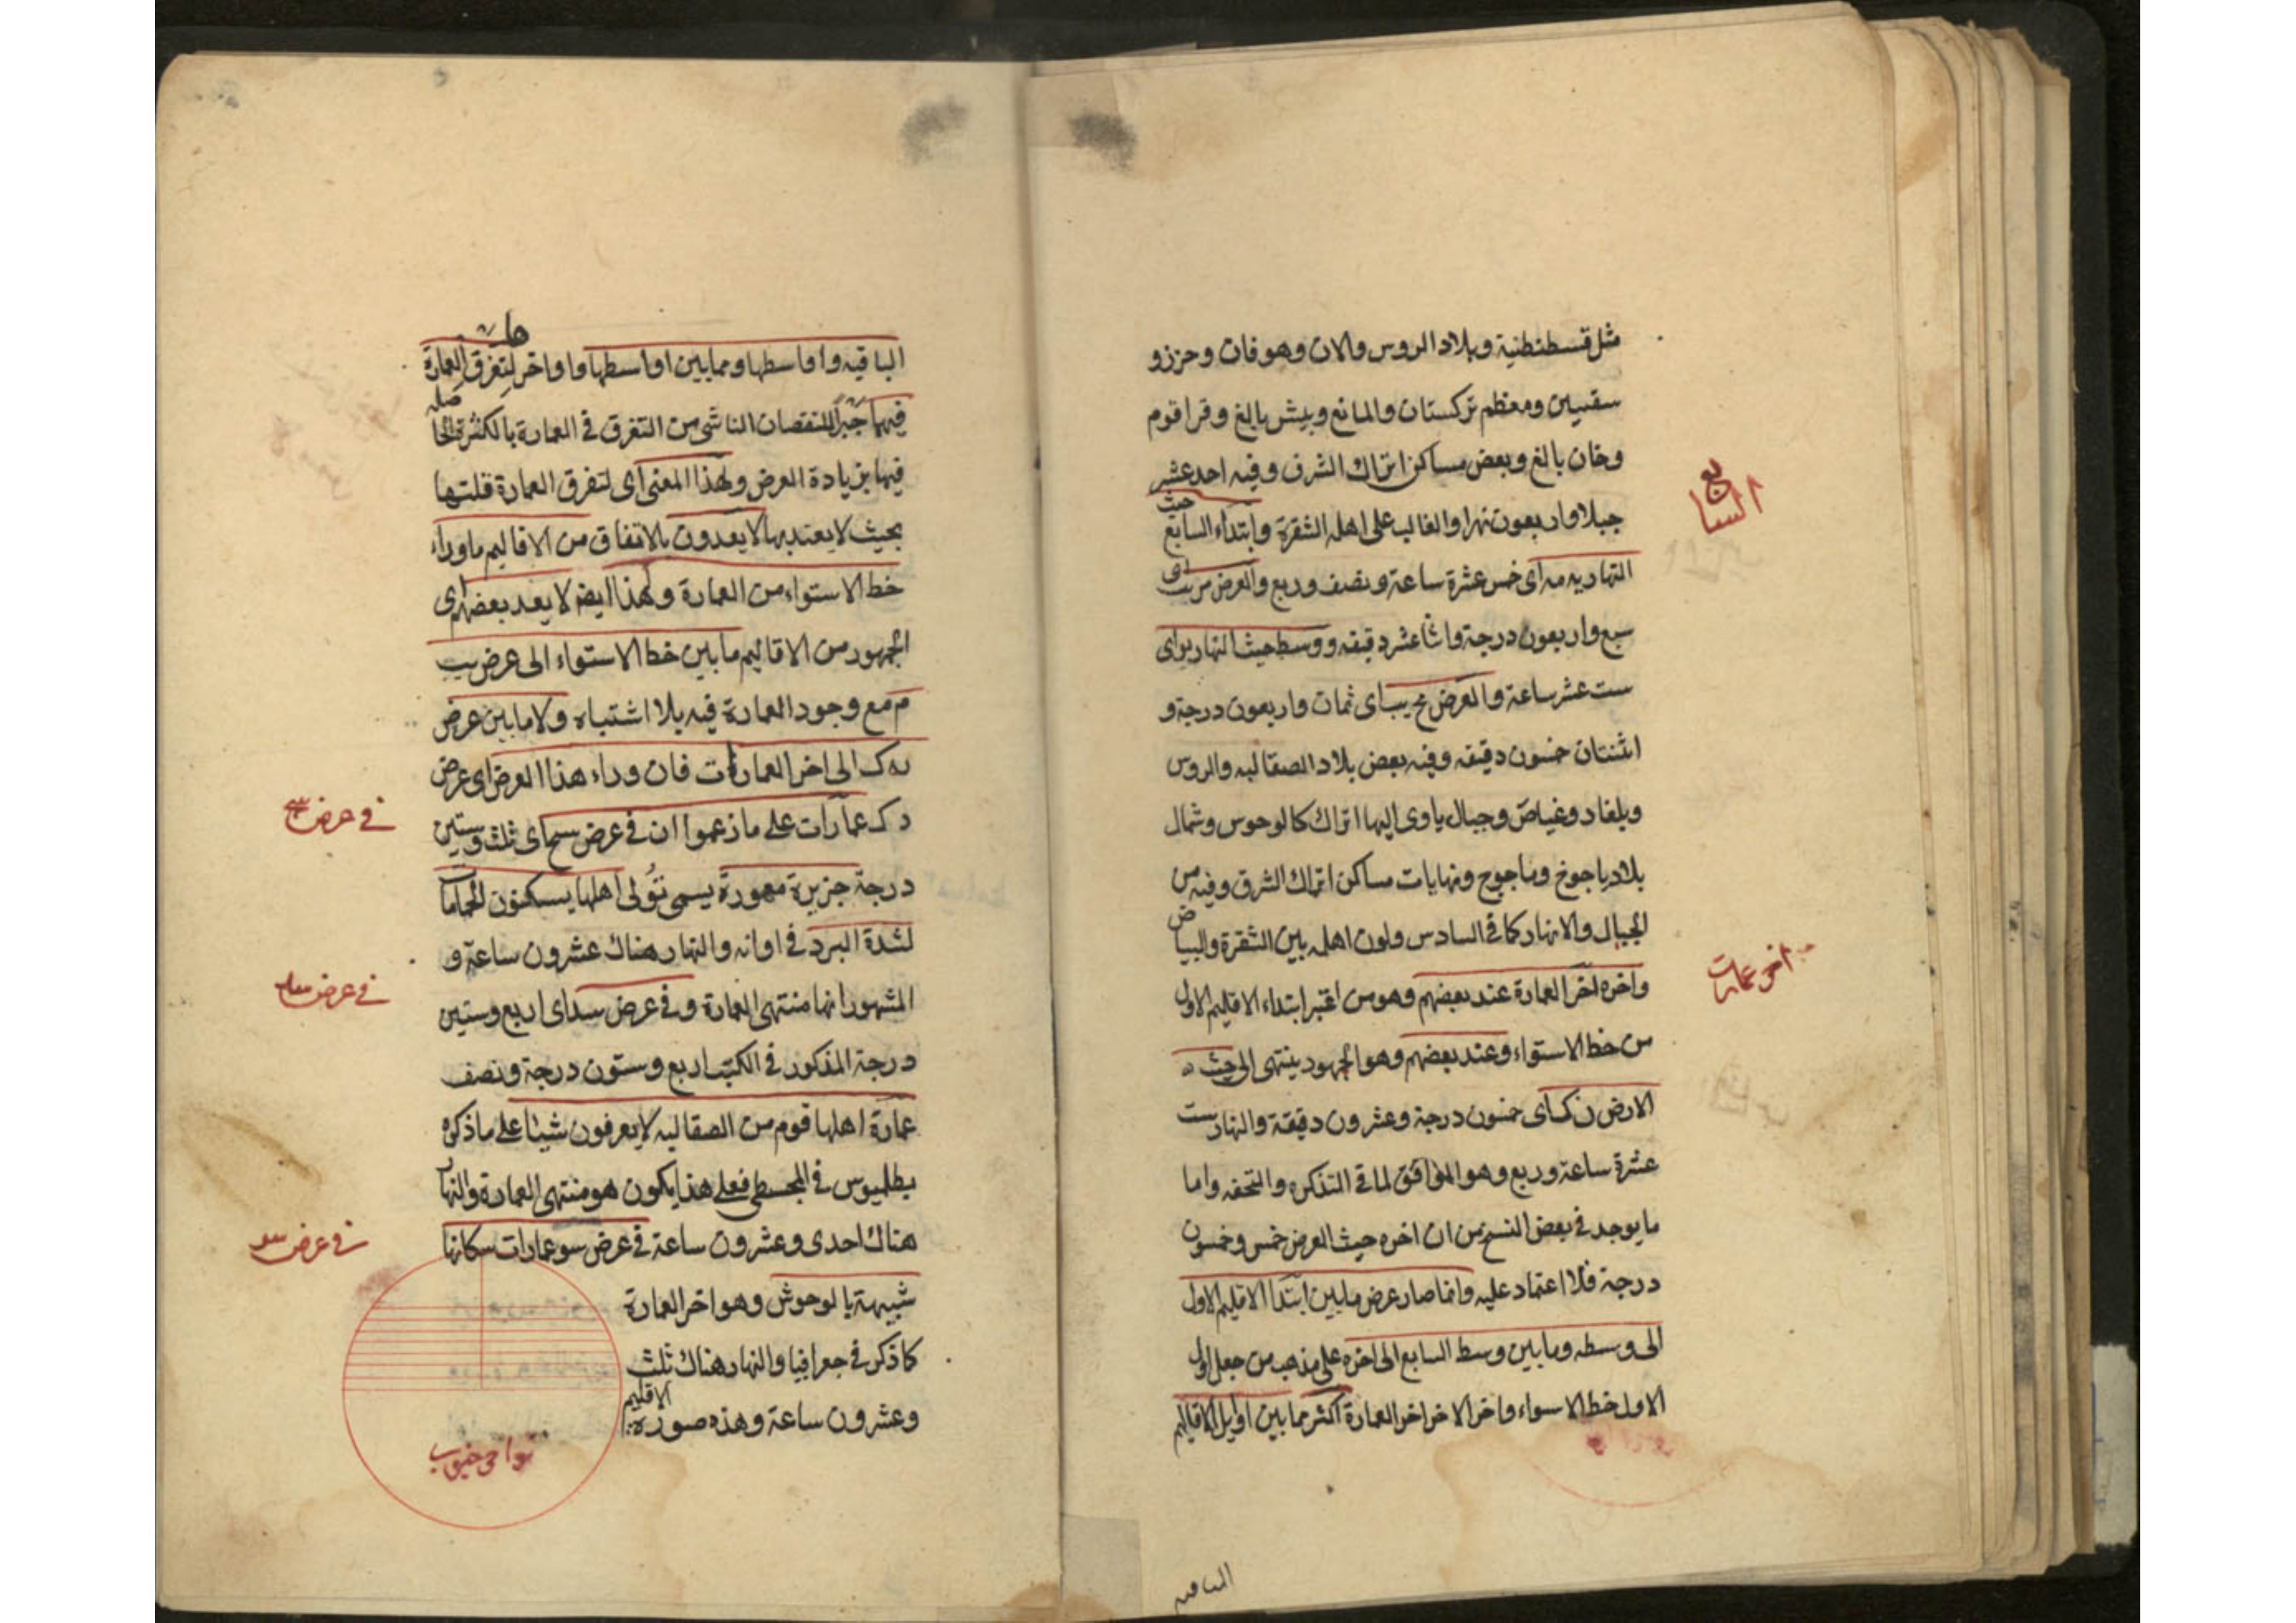 مثل قسطنطنية وبلاد الروس والان وهوفات وحزز و
سقسين ومعظم تركستان والمانع وبيش بالغ وقراقوم
وخان بالغ وبعض مساكن اتراك الشرق وفيه احد عشر
جبلا واربعون نهرا والغالب على اهله الشقرة وابتداء السابع حيث
السابع
النهار يه مه اى خمس عشرة ساعة ونصف وربع والعرض مز يب اى
سبع واربعون درجة واثنا عشر دقيقه ووسطه حيث النهار يو اى
ست عشر ساعة والعرض مح نب اى ثمان واربعون درجة و
اثنتان خمسون دقيقه وفيه بعض بلاد الصقالبه والروس
وبلغار وغياض وجبال ياوى اليها اتراك كالوحوس وشمال
بلاد ياجوج وماجوج ونهايات مساكن اتراك الشرق وفيه من
الجبال والانهار كما فى السادس ولون اهله بين الشقرة والبياض
واخره اخر العمارة عند بعضهم وهو من اعتبر ابتداء الاقليم الاول
اخر عمارت
من خط الاستواء وعند بعضهم وهو الجمهور ينتهى الى حيث
الارض ن ك اى خمسون درجة وعشرون دقيقة والنهار ست
عشرة ساعة وربع وهو الموافق لما فى التذكره والتحفه واما
ما يوجد فى بعض النسخ من ان اخره حيث العرض خمس وخمسون
درجة فلا اعتماد عليه وانما صار عرض ما بين ابتدا الاقليم الاول
الى وسطه وما بين وسط السابع الى اخره على مذهب من جعل اول
الاول خط الاسواء واخر الاخر اخر العمارة اكثر مما بين اوايل الاقاليم
الباقيه
الباقيه واواسطها ومما بين اواسطها واواخر لتفرق العمارة
فيهما جبرا للنقصان الناشى من التفرق فى العمارة بالكثرة الحاصله
فيها بزيادة العرض ولهذا المعنى اى لتفرق العمارة قلتها
بحيث لا يعتد بها لا يعدون بالاتفاق من الاقاليم ماوراء
خط الاستواء من العمارة ولهذا ايضا لا يعد بعضهم اى
الجمهور من الاقاليم ما بين خط الاستواء الى عرض يب
م مع وجود العمارة فيه بلا اشتباه ولا ما بين عرض
ن ك الى اخر العمارات فان وراء هذا العرض اى عرض
ن ك عمارات على ما زعموا ان فى عرض سج اى ثلث وستين
فى عرض سج
درجة جزيرة معمورة يسمى تولى اهلها يسكنون الحمامات
لشدة البرد فى اوانه والنهار هناك عشرون ساعة و
المشهور انها منتهى العمارة وفى عرض سد اى اربع وستين
فى عرض سد
درجة المذكور فى الكتب اربع وستون درجة ونصف
عمارة اهلها قوم من الصقالبه لا يعرفون شيئا على ما ذكره
بطلميوس فى المجسطى فعلى هذا يكون هو منتهى العمارة والنها
هناك احدى وعشرون ساعة فى عرض سو عمارات سكانها
فى عرض سو
شبيهة بالوحوش وهو اخر العمارة
كما ذكر فى جعرافيا والنهار هناك ثلث
وعشرون ساعة وهذه صورة الاقليم
نواحى جنوب